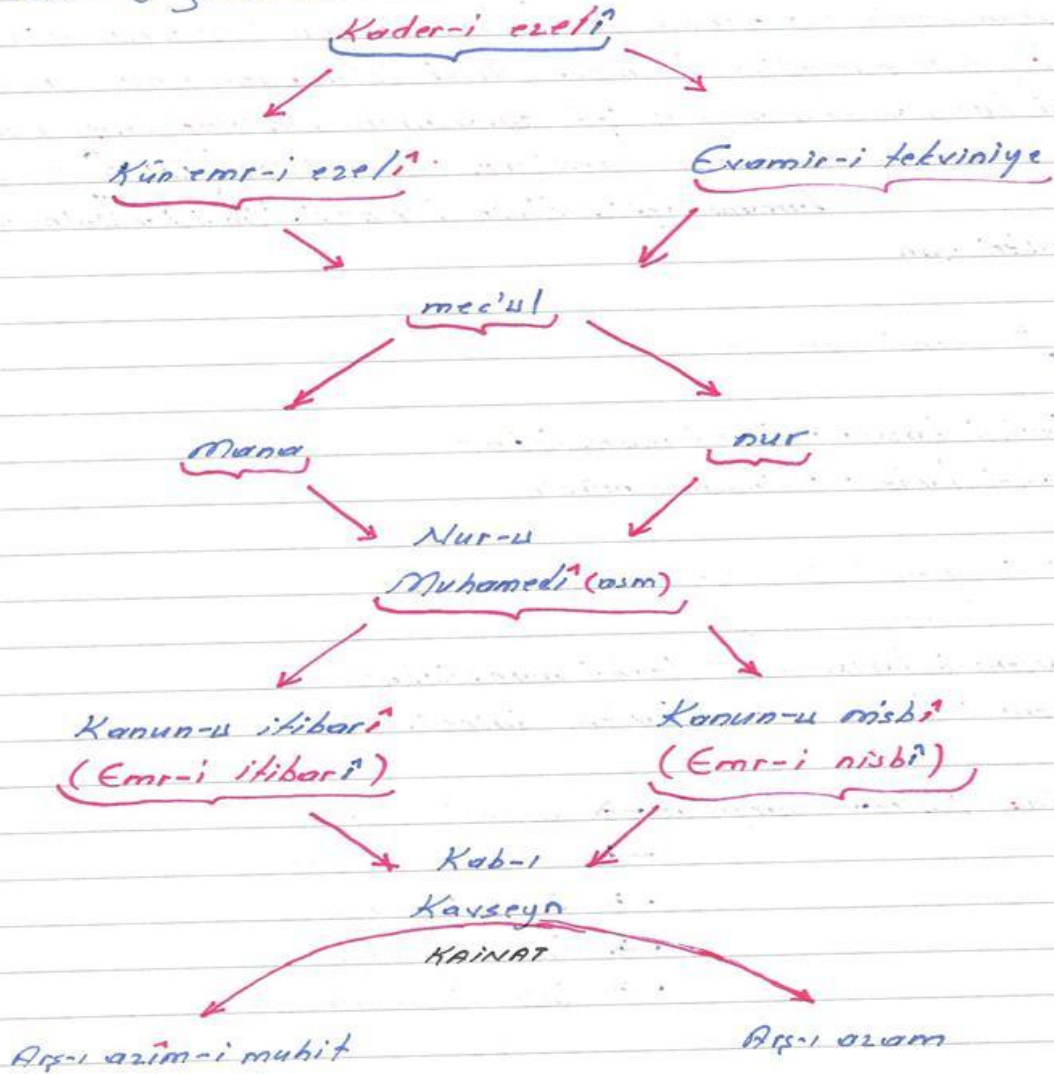 Kader-i ezelî
Kün emr-i ezelî
Evamir-i tekviniye
mec'ul
Mana
nur
Nur-u
Muhamedî (asm)
Kanun-u itibarî
Kanun-u nisbî
(Emr-i itibarî)
(Emr-i nisbî)
Kab-ı
Kavseyn
KAİNAT
Arş-ı azîm-i muhit
Arş-ı azam